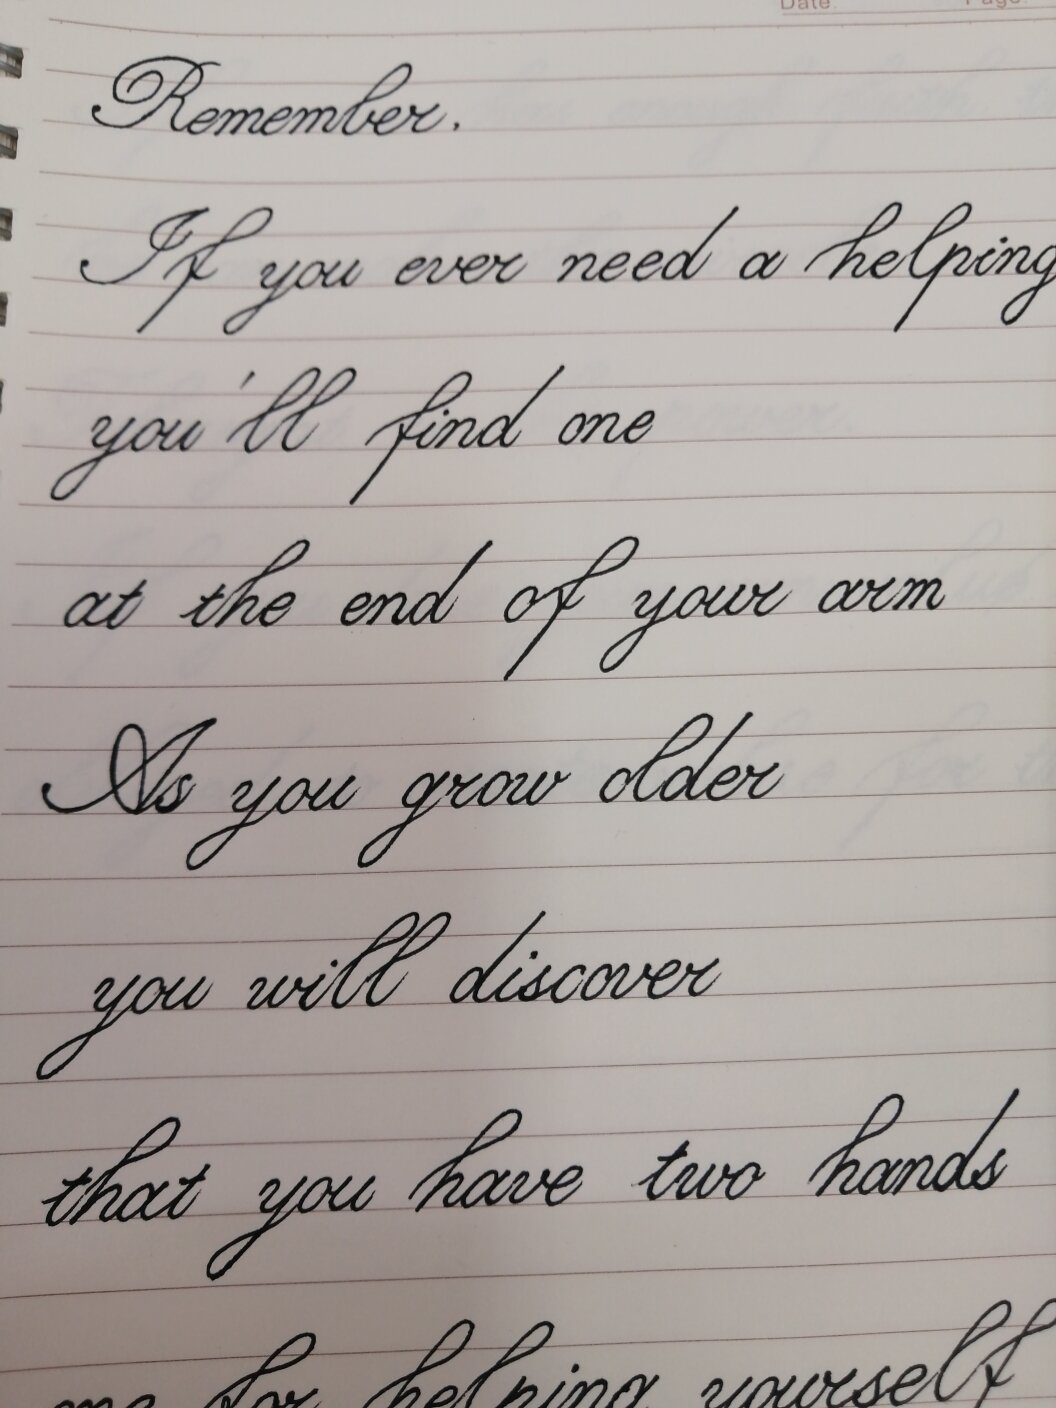 Date. Page.
Remember.
If you ever need a helping
you'll find one
at the end of your arm
As you grow older
you will discover
that you have two hands
one for helping yourself